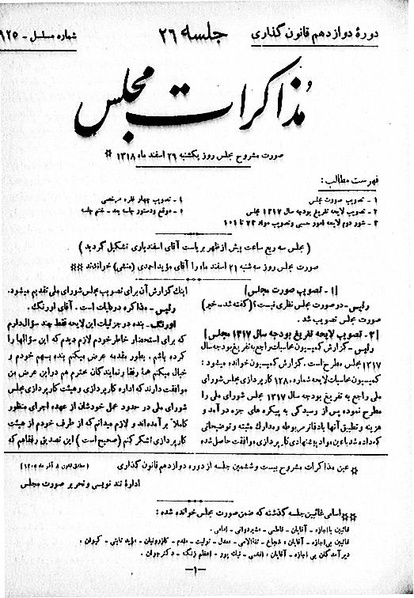 دورهٔ دوازدهم قانون گذاری
جلسه ۲۶
شماره مسلسل - ۹۲۵
مذاکرات مجلس
صورت مشروح مجلس روز یکشنبه ۲۶ اسفند ماه ۱۳۱۸ *
فهرست مطالب:
۱ - تصویب صورت مجلس
۲ - تصویب لایحه تفریغ بودجه سال ۱۳۱۷ مجلس
۳ - شور دوم لایحه امور حسبی و تصویب مواد ۷۳ تا ۱۰۱
۴ - تصویب چهار فقره مرخصی
۵ - موقع و دستور جلسه بعد - ختم جلسه
(مجلس سه ربع ساعت پیش از ظهر بریاست آقای اسفندیاری تشکیل گردید)
صورت مجلس روز سه شنبه ۲۱ اسفند ماه را آقای مؤید احمدی (منشی) خواندند **
[۱ - تصویب صورت مجلس]
رئیس - در صورت مجلس نظری نیست؟ (گفته شد - خیر)
صورت مجلس تصویب شد.
[۲ - تصویب لایحه تفریغ بودجه سال ۱۳۱۷ مجلس]
رئیس - گزارش کمیسیون محاسبات راجع به تفریغ بودجه سال
۱۳۱۷ مجلس مطرح است. گزارش کمیسیون خوانده میشود:
کمیسیون محاسبات لایحه شماره ۱۲۸۰ کارپردازی مجلس شورای
ملی راجع به تفریغ بودجه سال ۱۳۱۷ مجلس شورای ملی را
مطرح نموده پس از رسیدگی به پیکره های جزء درآمد و
هزینه و تطبیق آنها با دفاتر مربوطه و مدارک مثبته و توضیحاتی
که داده شد با عین مواد پیشنهادی کارپردازی موافقت حاصل شده
اینک گزارش آن برای تصویب مجلس شورای ملی تقدیم میشود.
رئیس - مذاکره در کلیات است. آقای اورنگ.
اورنگ - بنده در جزئیات این لایحه فقط چند سؤال دارم
که برای استحضار خاطر خودم لازم دیدم که این سؤالها را
کرده باشم. بطور مقدمه عرض میکنم بنده بسهم خودم و
خیال میکنم همهٔ رفقا و نمایندگان محترم هم در این عرض من
موافقت دارند که اداره کارپردازی و هیئت کارپردازی مجلس
شورای ملی در حدود عمل خودشان از عهده اجرای منظور
کاملاً برآمده اند و لازم میدانم که از طرف خودم از هیئت
کارپردازی تشکر کنم (صحیح است) این تصدیق رفقا هم که
* عین مذاکرات مشروح بیست و ششمین جلسه از دوره دوازدهم قانون گذاری
اداره تند نویسی و تحریر صورت مجلس
** اسامی غائبین جلسه گذشته که ضمن صورت مجلس خوانده شده:
غائبین با اجازه - آقایان - فاطمی - مشیر دوانی - امامی -
غائبین بی اجازه - آقایان: شجاع - نمازی - معدل - تولیت - مقدم - کازرونیان - مؤید ثابتی - کیوان.
دیرآمدگان بی اجازه - آقایان: افخمی - نیک پور - اعظم زنگنه - دکتر جوان.
-۱-